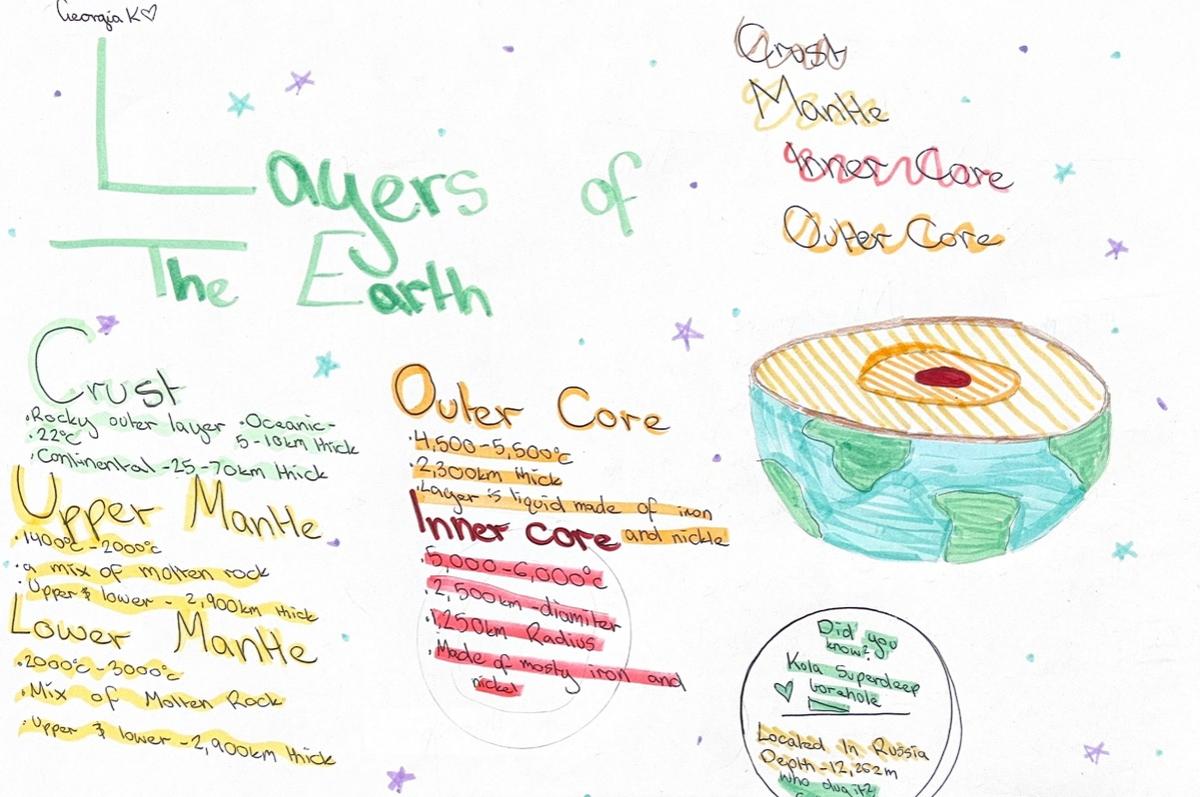 Georgia K♡
Layers of
The Earth
Crust
Mantle
Inner Core
Outer Core
Crust
•Rocky outer layer •Oceanic-
•22°c 5-10km thick
•Continental -25-70km thick
Upper Mantle
•1400°c-2000°c
•a mix of molten rock
•Upper & lower - 2,900km thick
Lower Mantle
•2000°c-3000°c
•Mix of Molten Rock
•Upper & lower -2,900km thick
Outer Core
•4,500-5,500°c
•2,300km thick
•Layer is liquid made of iron
and nickle
Inner core
•5,000-6,000°c
•2,500km-diamiter
•1,250km Radius
•Made of mosty iron and
nickel
Did you
know?
Kola Superdeep
♡ borehole
Located In Russia
Depth-12,262m
who dug it?